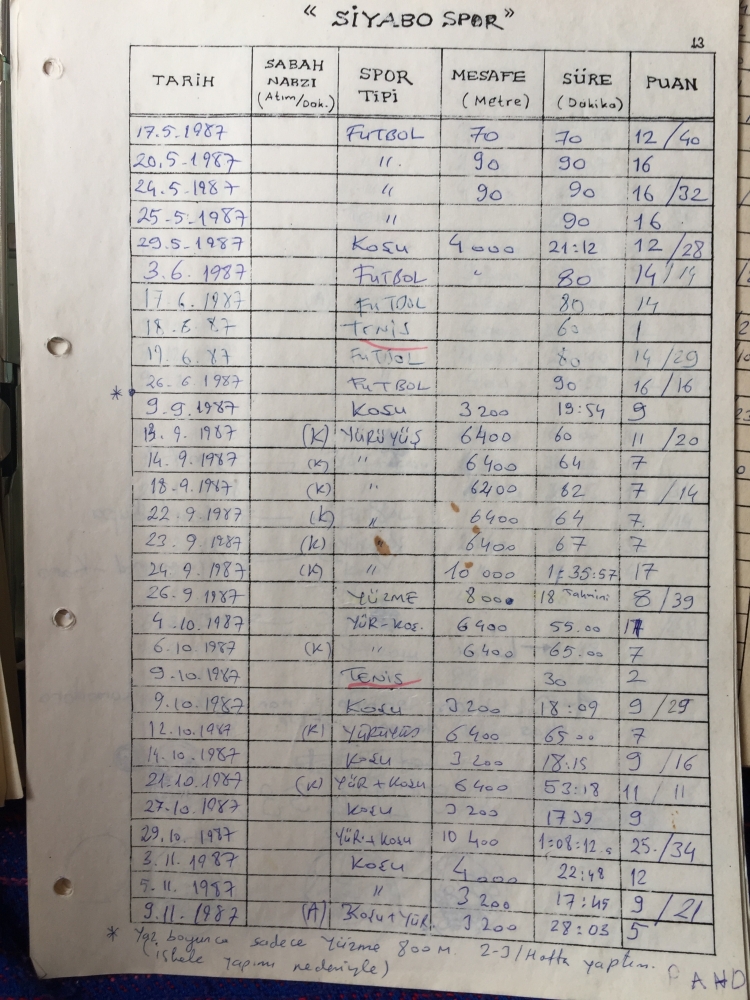 "SİYABO SPOR"
13
TARİH SABAH NABZI (Atım/Dak.) SPOR TİPİ MESAFE (Metre) SÜRE (Dakika) PUAN
17.5.1987 FUTBOL 70 70 12/40
20.5.1987 " 90 90 16
24.5.1987 " 90 90 16/32
25.5.1987 " 90 16
29.5.1987 KOŞU 4000 21:12 12/28
3.6.1987 FUTBOL " 80 14/14
17.6.1987 FUTBOL 80 14
18.6.87 TENİS 60 1
19.6.87 FUTBOL 80 14/29
26.6.1987 FUTBOL 90 16/16
* 9.9.1987 KOŞU 3200 19:54 9
13.9.1987 (K) YÜRÜYÜŞ 6400 60 11/20
14.9.1987 (K) " 6400 64 7
18.9.1987 (K) " 6400 62 7/14
22.9.1987 (K) " 6400 64 7
23.9.1987 (K) 6400 67 7
24.9.1987 (K) " 10 000 1:35:57 17
26.9.1987 YÜZME 800 18 Tahmini 8/39
4.10.1987 YÜR-KOŞ. 6400 55.00 11
6.10.1987 (K) " 6400 65.00 7
9.10.1987 TENİS 30 2
9.10.1987 KOŞU 3200 18:09 9/29
12.10.1987 (K) YÜRÜYÜŞ 6400 65 00 7
14.10.1987 KOŞU 3200 18:15 9/16
21.10.1987 (K) YÜR + KOŞU 6400 53:18 11/11
27.10.1987 KOŞU 3200 17 39 9
29.10.1987 YÜR + KOŞU 10 400 1:08:12 25/34
3.11.1987 KOŞU 4000 22:48 12
5.11.1987 " 3200 17:45 9/21
9.11.1987 (A) KOŞU + YÜR. 3200 28:03 5
* Yaz boyunca sadece Yüzme 800 M. 2-3/Hafta yaptım.
(iskele yapımı nedeniyle)